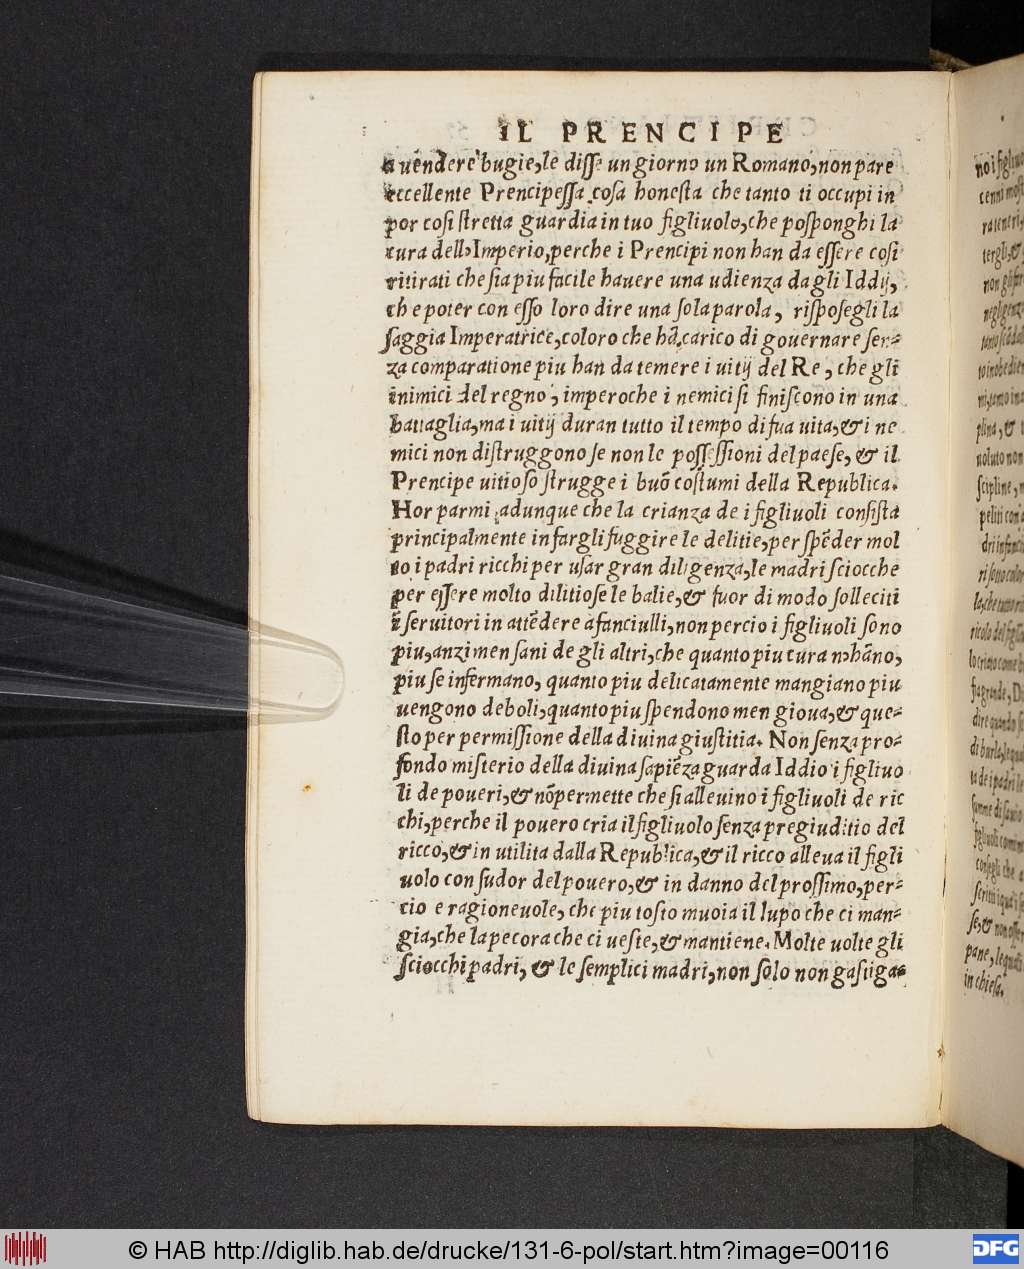 IL PRENCIPE
a vēdere bugie, le disse un giorno un Romano, non pare
eccellente Prencipessa cosa honesta che tanto ti occupi in
por cosi stretta guardia in tuo figliuolo, che posponghi la
cura dell'Imperio, perche i Prencipi non han da essere cosi
ritirati che sia piu facile havere una udienza da gli Iddij,
che poter con esso loro dire una sola parola, risposegli la
saggia Imperatrice, coloro che hā carico di governare sen-
za comparatione piu han da temere i uitij del Re, che gli
inimici del regno, imperoche i nemici si finiscono in una
battaglia, ma i uitij duran tutto il tempo di sua uita, & i ne
mici non distruggono se non le possessioni del paese, & il
Prencipe uitioso strugge i buō costumi della Republica.
Hor parmi adunque che la crianza de i figliuoli consista
principalmente in fargli fuggire le delitie, per spēder mol
to i padri ricchi per usar gran diligenza, le madri sciocche
per essere molto dilitiose le balie, & fuor di modo solleciti
i seruitori in attēdere a fanciulli, non percio i figliuoli sono
piu, anzi men sani de gli altri, che quanto piu cura n'hāno,
piu se infermano, quanto piu delicatamente mangiano piu
uengono deboli, quanto piu spendono men gioua, & que-
sto per permissione della divina giustitia. Non senza pro-
fondo misterio della divina sapiēza guarda Iddio i figliuo
li de poueri, & nō permette che si alleuino i figliuoli de ric
chi, perche il povero cria il figliuolo senza pregiuditio del
ricco, & in utilita dalla Republica, & il ricco alleua il figli
uolo con sudor del pouero, & in danno del prossimo, per-
cio e ragioneuole, che piu tosto muoia il lupo che ci man-
gia, che la pecora che ci ueste, & mantiene. Molte uolte gli
sciocchi padri, & le semplici madri, non solo non gastiga-
in chiesa.
© HAB http://diglib.hab.de/drucke/131-6-pol/start.htm?image=00116
DFG